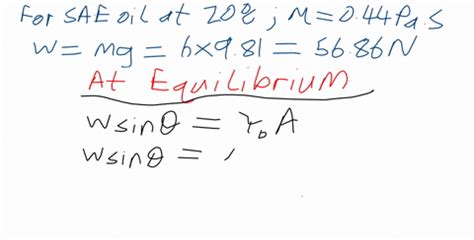 For SAE oil at 20°c; M=0.44Pa.S
W = mg = 6×9.81 = 56.86N
At Equilibrium
Wsinθ = τ₀A
Wsinθ =